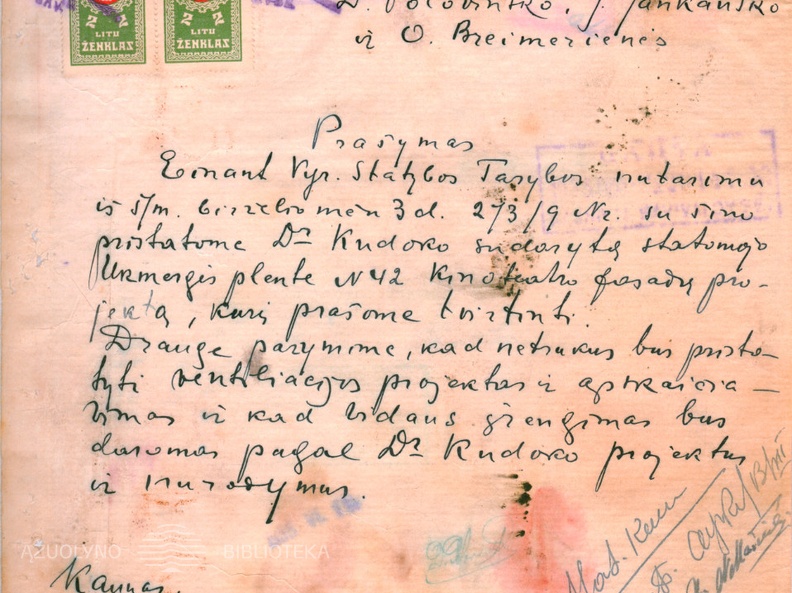 2 2
LITU LITU
ŽENKLAS ŽENKLAS
D. Polovinsko, J. Jankausko
ir O. Breimerienės
Prašymas
Einant Vyr. Statybos Tarybos nutarimu
iš š/m. birželio mėn 3 d. 273/9 Nr. su šiuo
pristatome Dr Kudoko sudarytą statomojo
Ukmergės plente N42 kinoteatro fasadų pro-
jektą, kurį prašome tvirtinti.
Drauge pažymime, kad netrukus bus prista-
tyti ventiliacijos projektas ir apskaičia-
vimas ir kad vidaus įrengimas bus
daromas pagal Dr Kudoko projektus
ir nurodymus.
AŽUOLYNO BIBLIOTEKA
Kaunas,